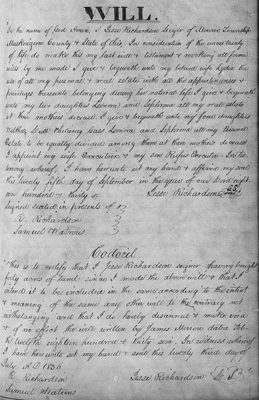 WILL.
In the name of God Amen, I Jesse Richardson Senyor of Monroe Township
Muskingum County & State of Ohio, In consideration of the uncertainty
of life do make this my last will & testament & revoking all former
wills by me made I give & bequeath unto my beloved wife Lydia the
use of all my personal & real estate with all the appurtenances &
privileges thereunto belonging during her natural life I give & bequeath
unto my two daughters and Sophrona all my real estate
at their mothers decease. I give & bequeath unto my four daughters
and Sophrona all my personal
Estate to be equally divided among them at their mothers decease
I appoint my wife Executrix & my son Rufus Executor. In tes
timony whereof, I have hereunto set my hand & affixed my seal
this twenty fifth day of September in the year of our Lord eight
een hundred & thirty
Jesse Richardson
Signed sealed in presents of
R. Richardson
Samuel
Codocil
This is to certify that I Jesse Richardson senyor having bought
forty acres of land since I made the above will & that I
intend it to be included in the same according to the intent
& meaning of the same any other will to the contrary not
withstanding and that I do hereby disannul & make void
& of no effect the will written by James dated
the twelfth eighteen hundred & thirty six. In witness whereof
I have hereunto set my hand & seal this twenty third day of
AD 1836
R Richardson Jesse Richardson L S
Samuel